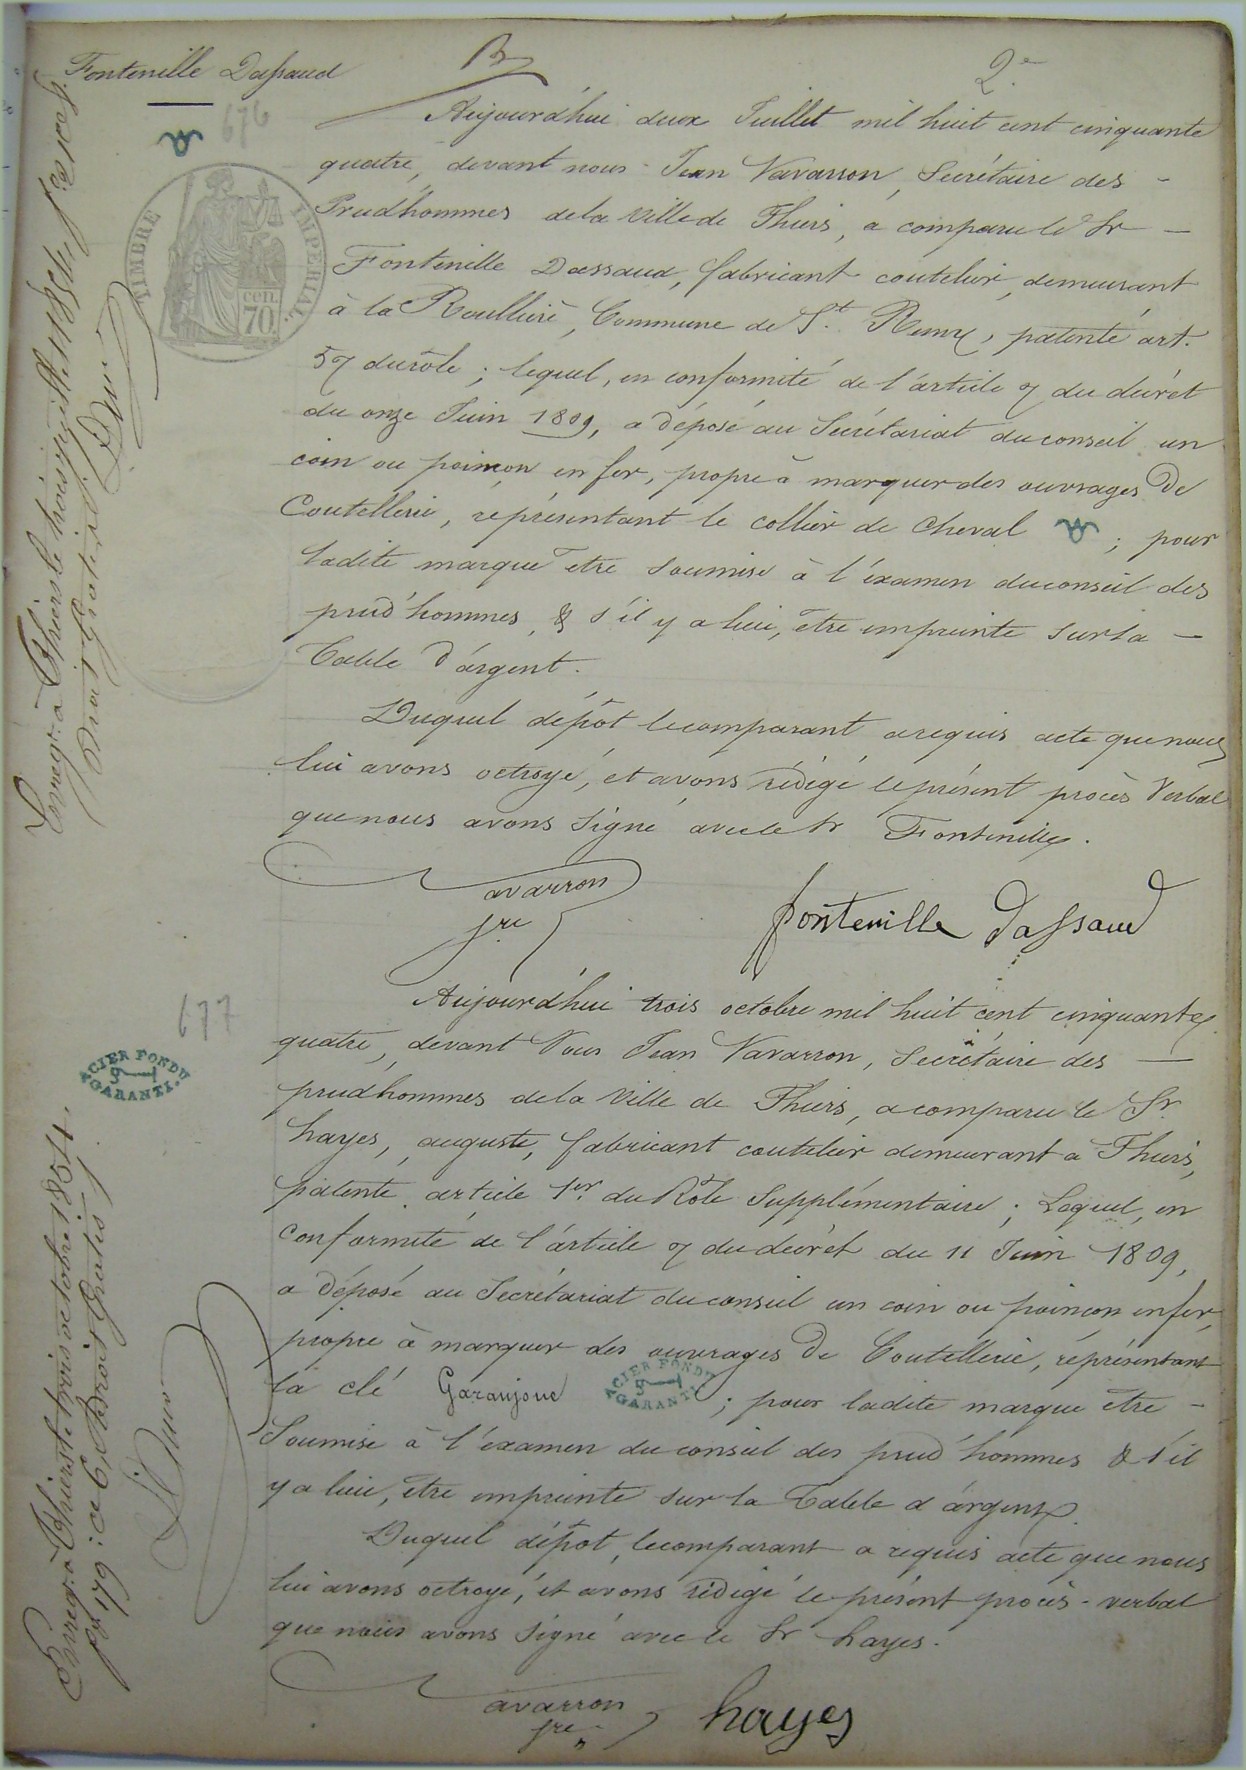 Fontenille Dassaud
2e
676
Aujourd'hui deux Juillet mil huit cent cinquante
quatre, devant nous Jean Navarron, Secrétaire des -
Prudhommes de la ville de Thiers, a comparu le Sr -
Fontenille Dassaud, fabricant coutelier, demeurant
à la Roullière, Commune de St. Remy, patenté art.
57 du rôle ; lequel, en conformité de l'article 7 du décret
du onze Juin 1809, a déposé au Secrétariat du conseil un
coin ou poinçon en fer, propre à marquer des ouvrages De
Coutellerie, représentant le collier de cheval ; pour
ladite marque être soumise à l'examen du conseil des
prud'hommes, & s'il y a lieu, être empreinte sur la -
Table d'argent.
Duquel dépôt le comparant a requis acte que nous
lui avons octroyé, et avons rédigé le présent procès Verbal
que nous avons signé avec le Sr Fontenille.
TIMBRE IMPERIAL
cen.
70
Enreg. à Thiers le trois juillet 1854
Droit Gratis
Navarron
sre
fontenille Dassaud
677
Aujourd'hui trois octobre mil huit cent cinquante
quatre, devant Nous Jean Navarron, Secrétaire des -
prudhommes de la ville de Thiers, a comparu le Sr.
hayes, auguste, fabricant coutelier demeurant à Thiers,
patenté article 1er. du Rôle Supplémentaire ; Lequel, en
conformité de l'article 7 du décret du 11 Juin 1809,
a déposé au Secrétariat du conseil un coin ou poinçon en fer,
propre à marquer des ouvrages De Coutellerie, représentant
la clé Garanjoue ACIER FONDU GARANTI ; pour ladite marque être -
Soumise à l'examen du conseil des prud'hommes & s'il
y a lieu, être empreinte sur la Table d'argent.
Duquel dépôt, le comparant a requis acte que nous
lui avons octroyé, et avons rédigé le présent procès-verbal
que nous avons signé avec le Sr hayes.
ACIER FONDU
GARANTI.
Enreg. à Thiers le trois octobre 1854,
fo 179 : ce 6, Droit Gratis
Navarron
sre
hayes